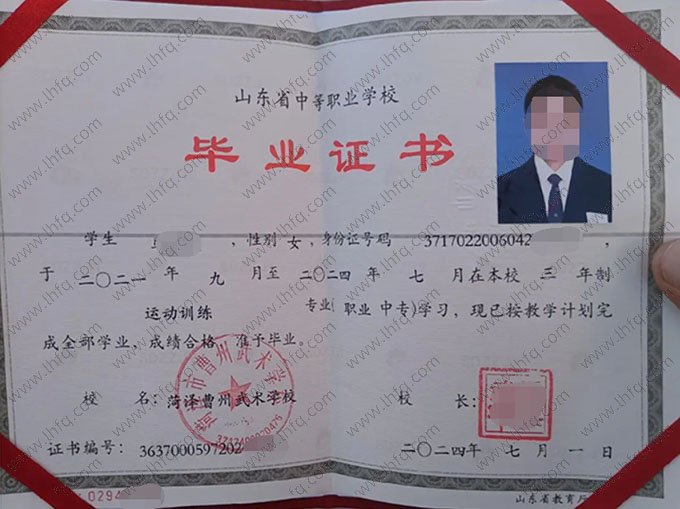 山东省中等职业学校
毕业证书
学生 , 性别 女 , 身份证号码 3717022006042 ,
于 二〇二一 年 九 月至 二〇二四 年 七 月在本校 三 年制
运动训练 专业( 职业 中专)学习，现已按教学计划完
成全部学业，成绩合格，准予毕业。
校 名：菏泽曹州武术学校
校 长：
证书编号：3637000597202
二〇二四年 七 月 一 日
0294
山东省教育厅
www.lhfq.com